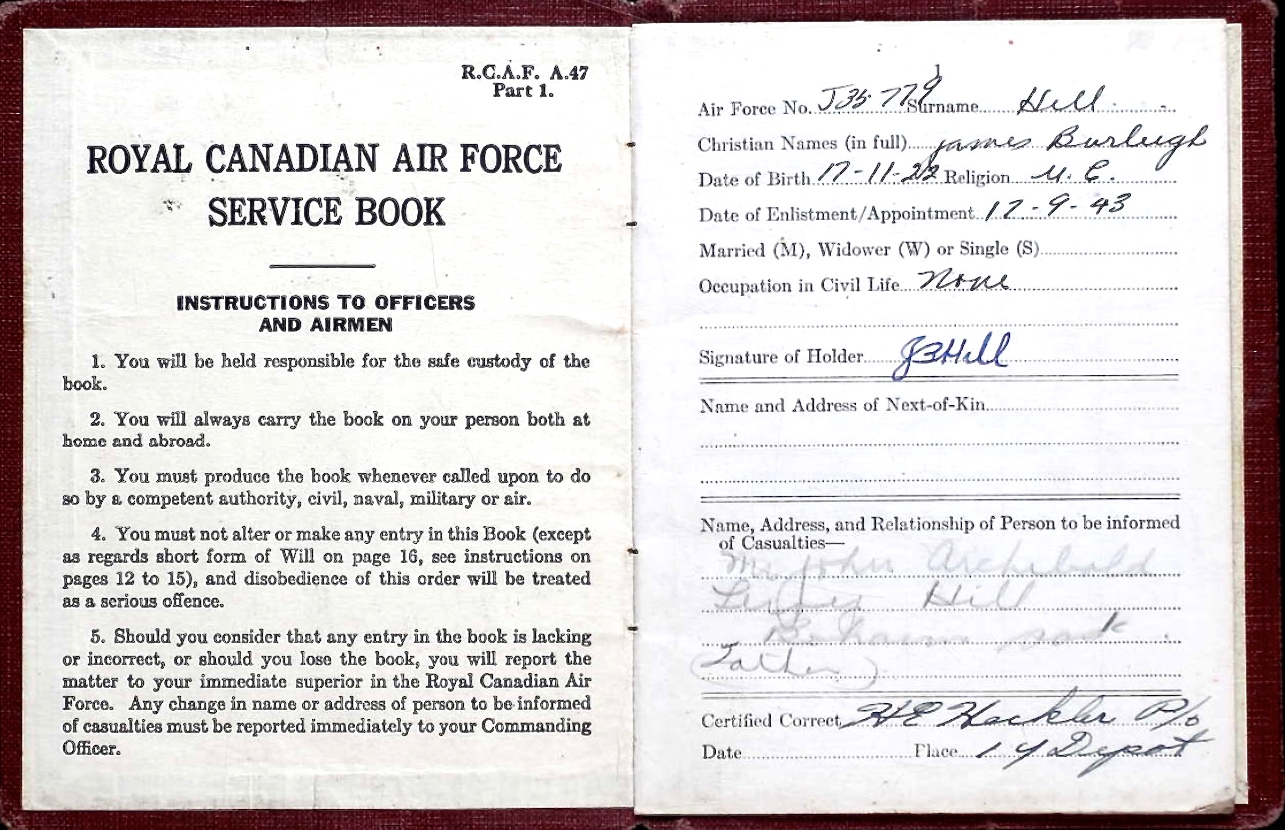 R.C.A.F. A.47
Part 1.
ROYAL CANADIAN AIR FORCE
SERVICE BOOK
INSTRUCTIONS TO OFFICERS
AND AIRMEN
1. You will be held responsible for the safe custody of the
book.
2. You will always carry the book on your person both at
home and abroad.
3. You must produce the book whenever called upon to do
so by a competent authority, civil, naval, military or air.
4. You must not alter or make any entry in this Book (except
as regards short form of Will on page 16, see instructions on
pages 12 to 15), and disobedience of this order will be treated
as a serious offence.
5. Should you consider that any entry in the book is lacking
or incorrect, or should you lose the book, you will report the
matter to your immediate superior in the Royal Canadian Air
Force. Any change in name or address of person to be informed
of casualties must be reported immediately to your Commanding
Officer.
Air Force No. J35779 Surname Hill
Christian Names (in full) James Burleigh
Date of Birth 17-11-22 Religion U.C.
Date of Enlistment/Appointment 17-9-43
Married (M), Widower (W) or Single (S)
Occupation in Civil Life None
Signature of Holder JBHill
Name and Address of Next-of-Kin
Name, Address, and Relationship of Person to be informed
of Casualties—
Mr. John Archibald
Hill
Sask.
(Father)
Certified Correct HE Hackler P/o
Date Place 1 Y Depot